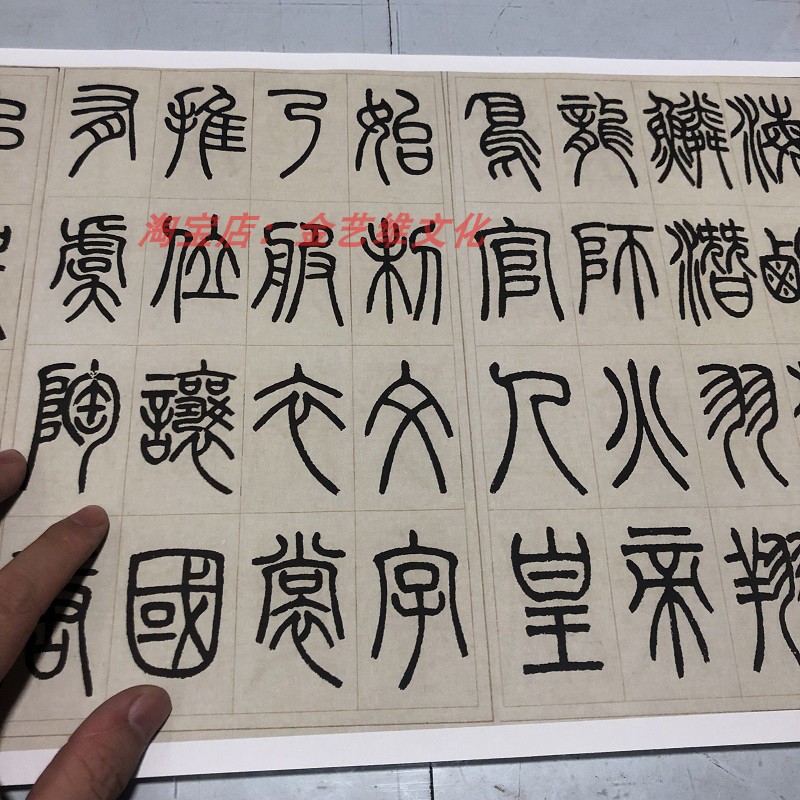 海鹹
鱗潛羽翔
龍師火帝
鳥官人皇
始制文字
乃服衣裳
推位讓國
有虞陶唐
淘宝店：金艺维文化